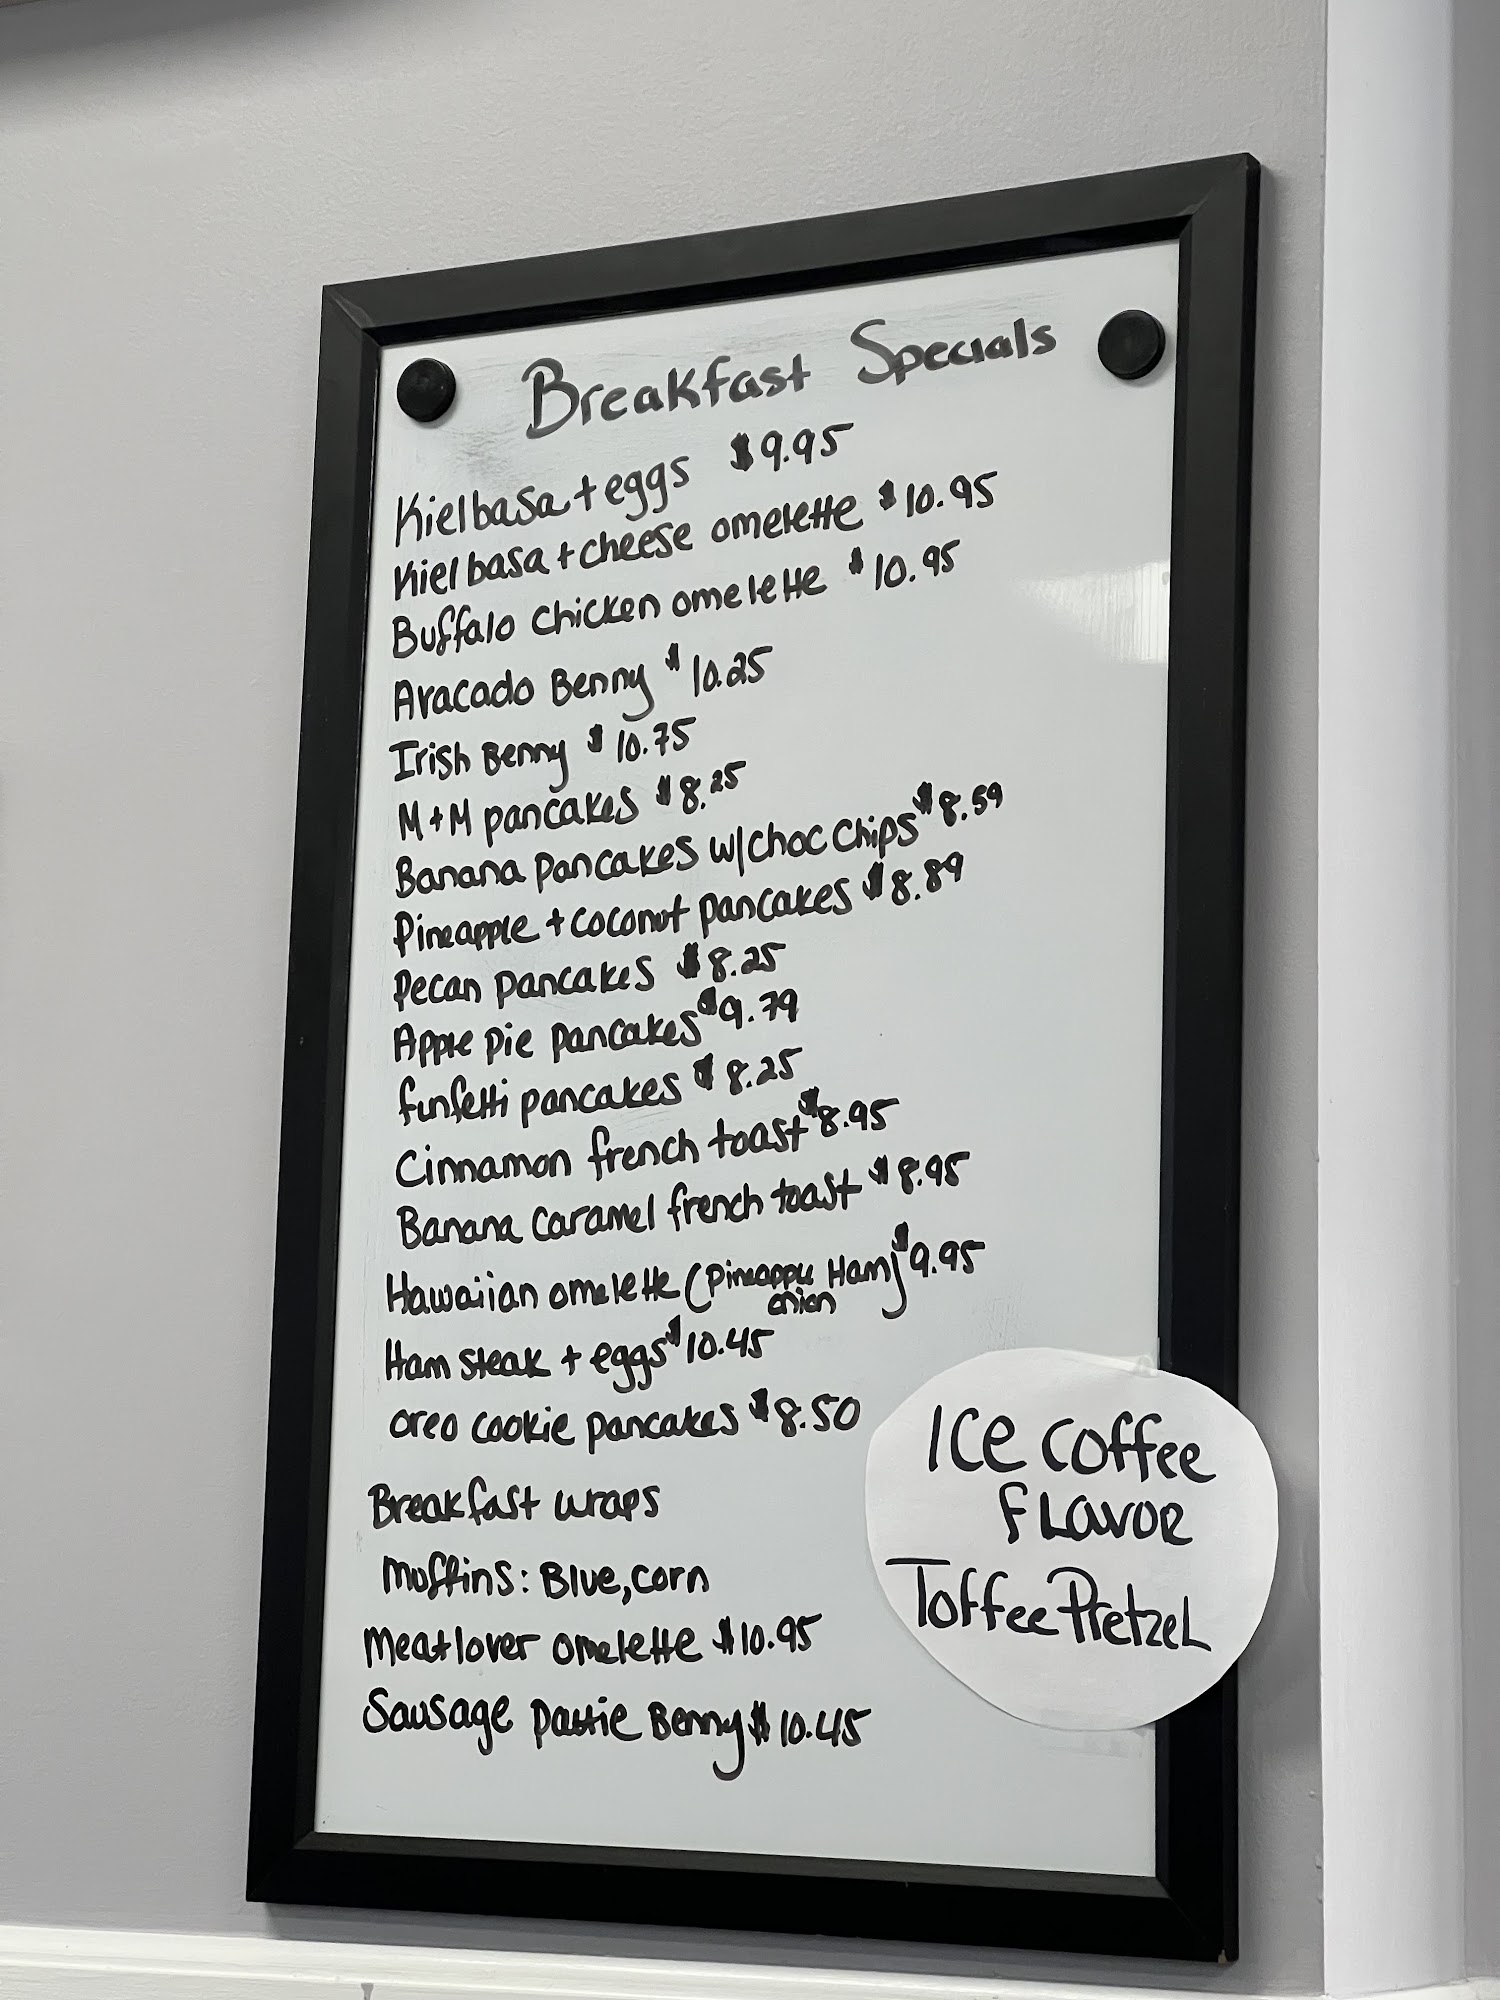 Breakfast Specials
Kielbasa + eggs $9.95
Kielbasa + cheese omelette $10.95
Buffalo chicken omelette $10.95
Avacado Benny $10.25
Irish Benny $10.75
M+M pancakes $8.25
Banana pancakes w/choc chips $8.59
Pineapple + coconut pancakes $8.89
Pecan pancakes $8.25
Apple pie pancakes $9.79
funfetti pancakes $8.25
Cinnamon french toast $8.95
Banana caramel french toast $8.95
Hawaiian omelette (Pineapple Ham) $9.95
onion
Ham steak + eggs $10.45
oreo cookie pancakes $8.50
Breakfast wraps
muffins: Blue, corn
Meatlover omelette $10.95
Sausage Pattie Benny $10.45
ICe Coffee
FLavoR
Toffee PretzeL